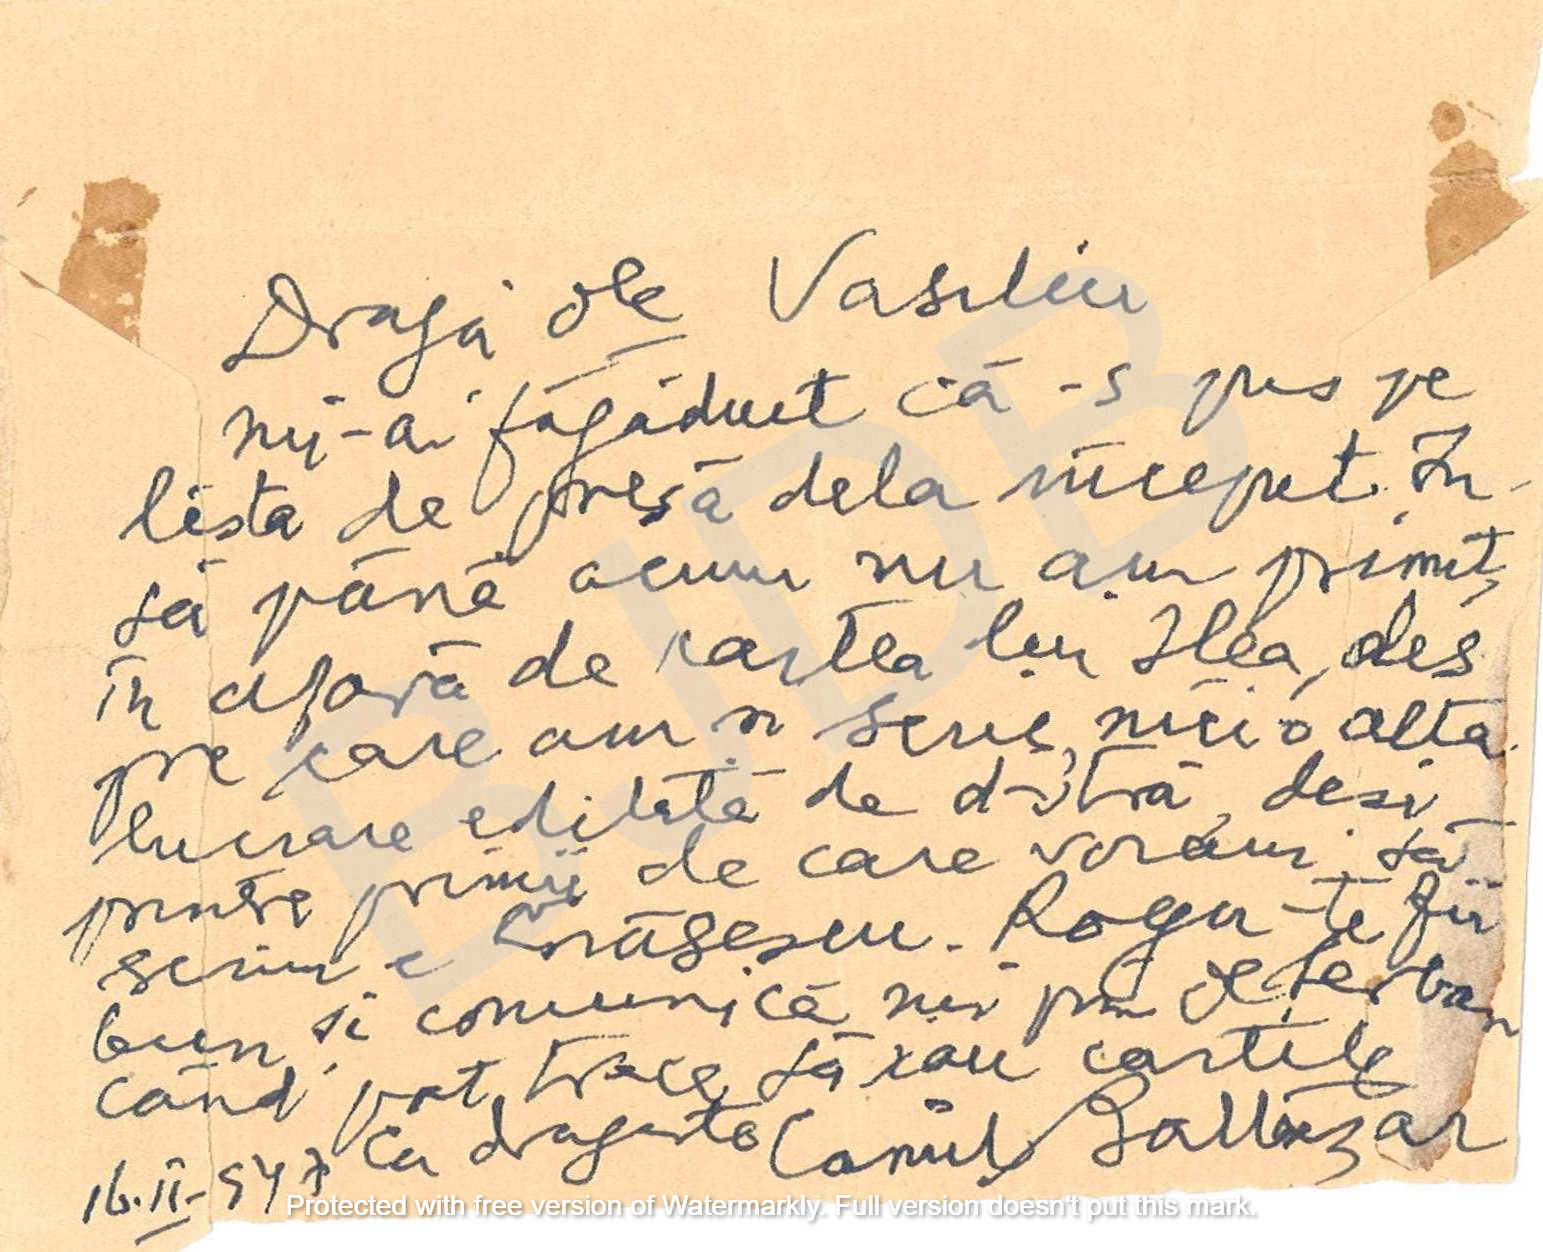 Dragă dle Vasiliu
mi-ai făgăduit că-s pus pe
lista de presă dela început. În-
să până acum nu am primit,
în afară de cartea lui Ilea, des
pre care am și scris, nici o altă
lucrare editată de d-tră, deși
printre primii de care voiam să
scriu e Brăsescu. Rogu-te fii
bun și comunică-mi prin dl Șerban
când pot trece să iau cărțile
Cu dragoste Camil Baltazar
16.II-947
BJDB
Protected with free version of Watermarkly. Full version doesn't put this mark.